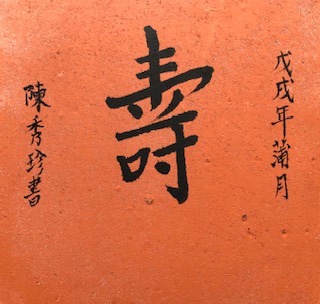 戊戌年蒲月
壽
陳秀珍書